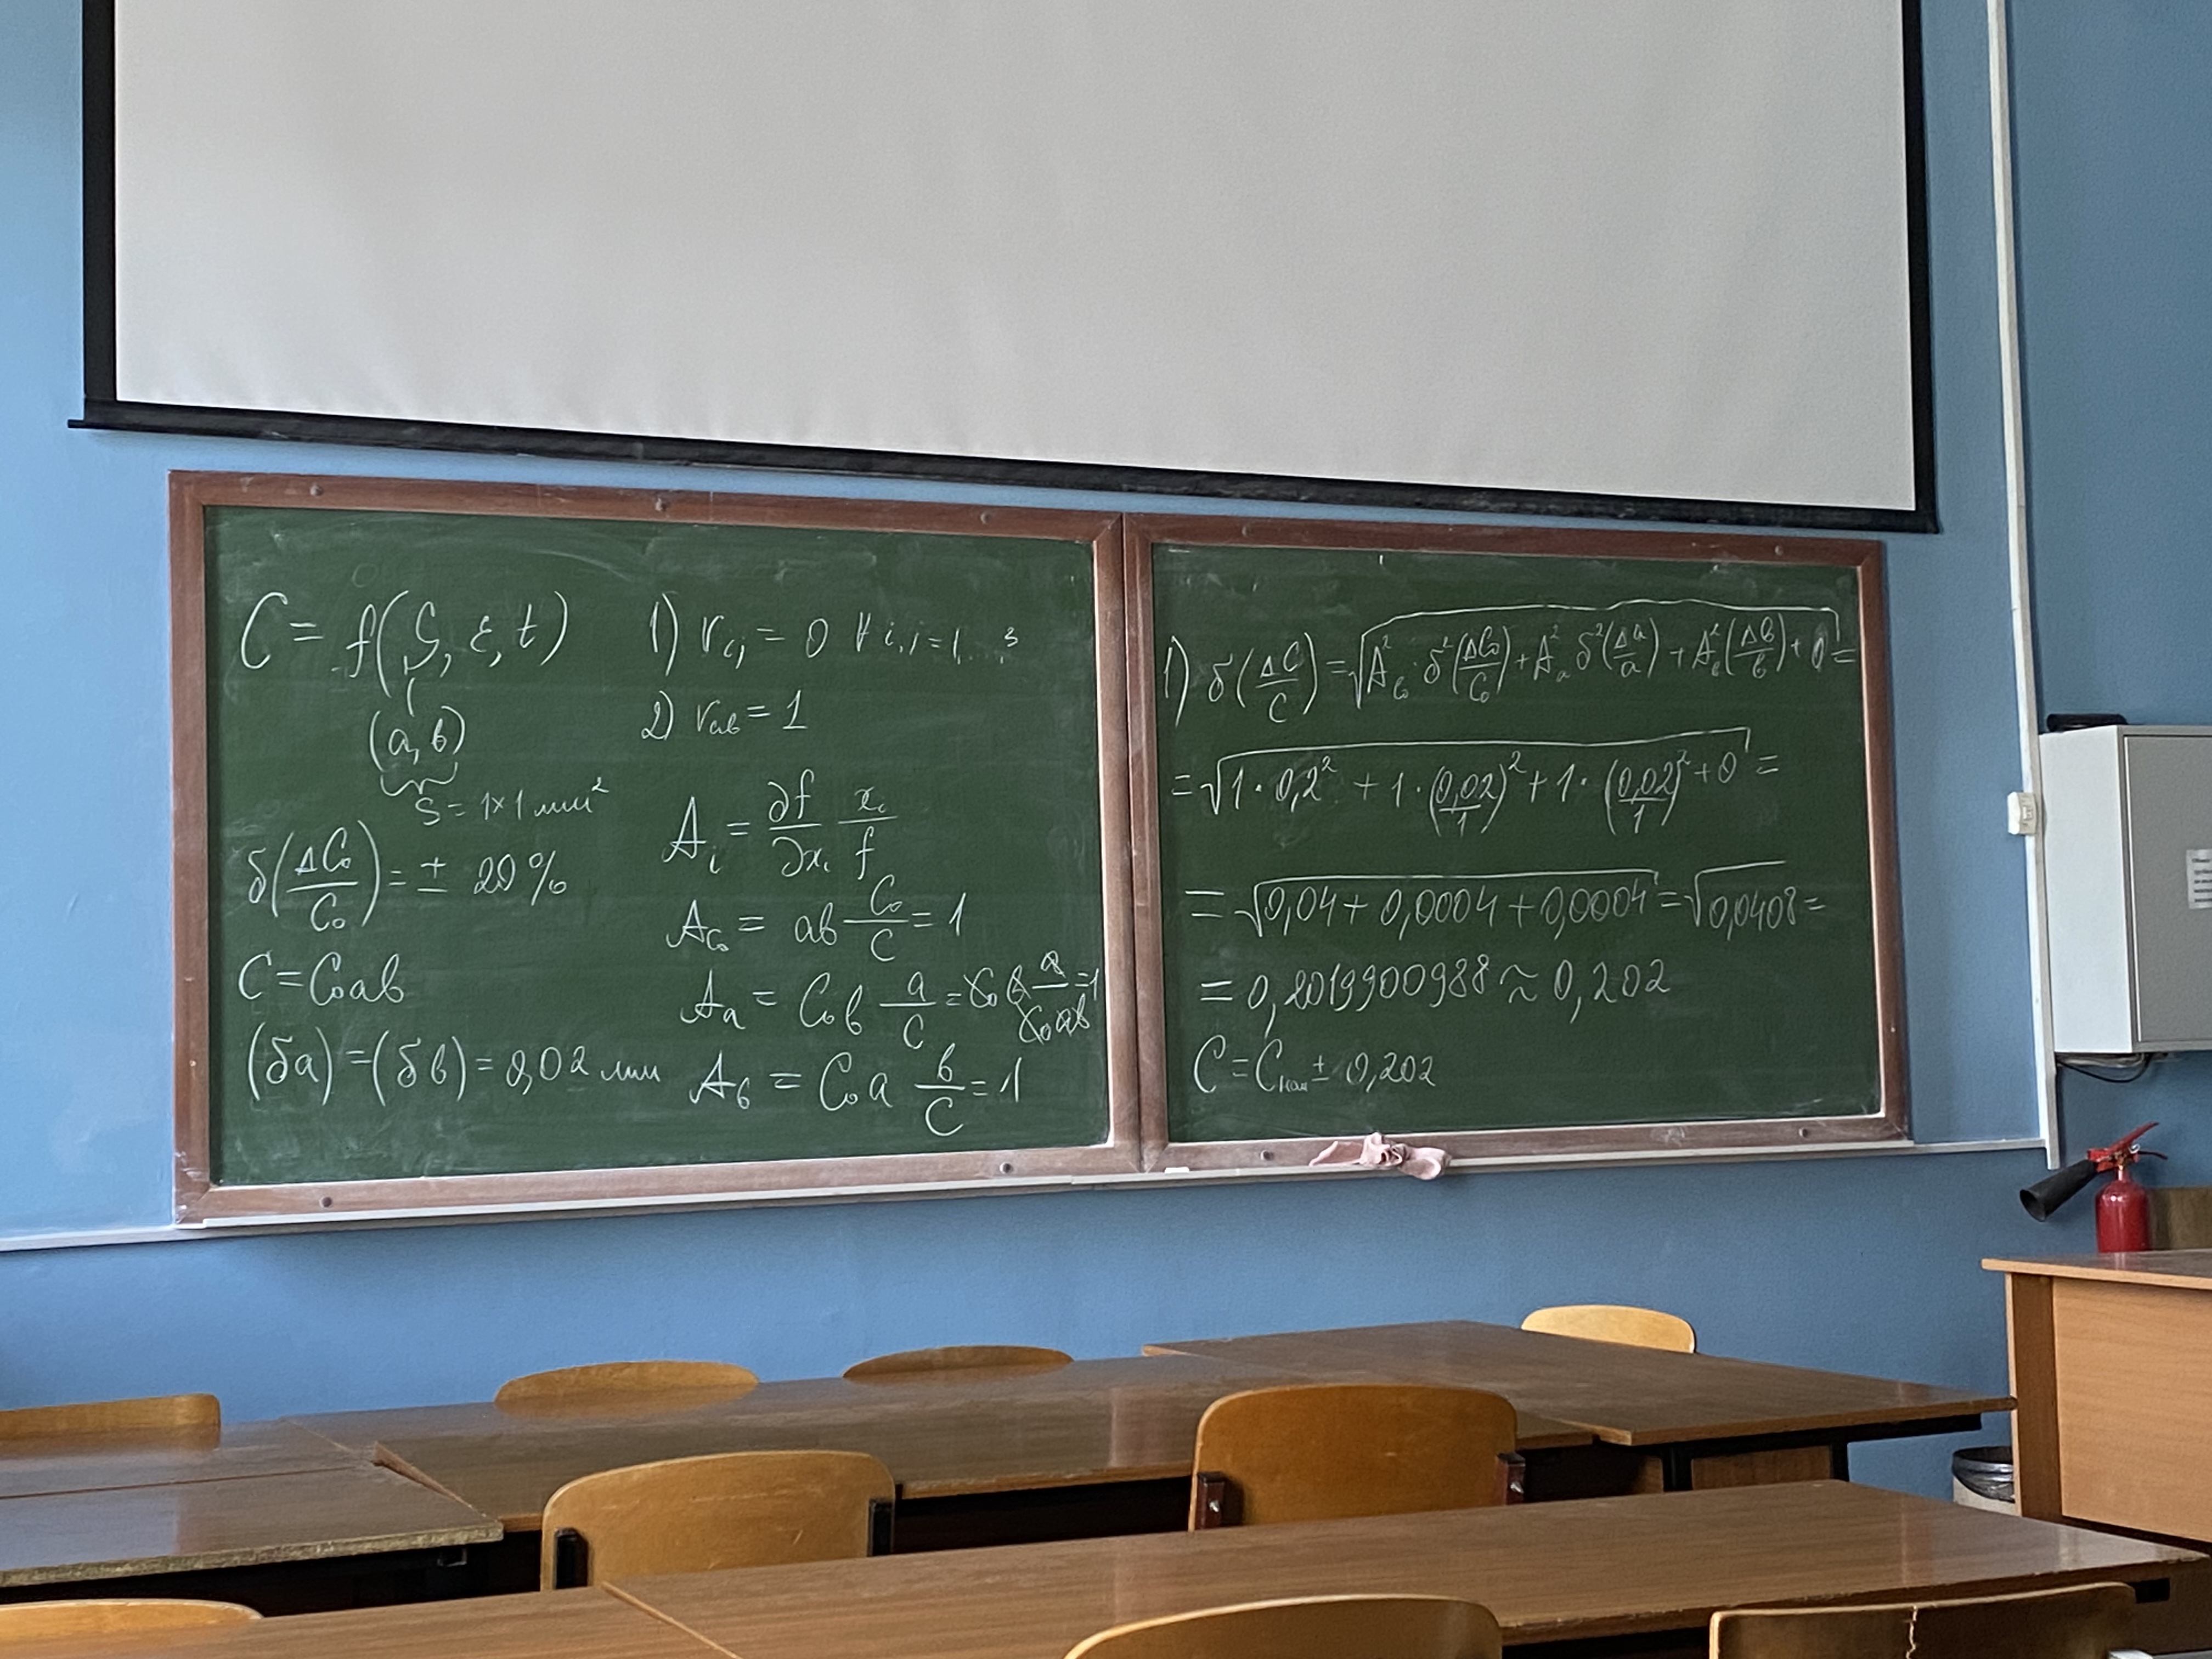 C = f(S, ε, t)
(a, в)
S = 1×1 мм²
δ(ΔC₀/C₀) = ± 20 %
C = C₀ aв
(δa) = (δв) = 0,02 мм
1) rᵢⱼ = 0 ∀ i, j = 1...3
2) rₐв = 1
Aᵢ = ∂f/∂xᵢ xᵢ/f
A_C₀ = aв C₀/C = 1
Aₐ = C₀ в a/C = C₀ в a/C₀ aв = 1
Aв = C₀ a в/C = 1
1) δ(ΔC/C) = √(A²_C₀ · δ²(ΔC₀/C₀) + A²ₐ δ²(Δa/a) + A²в (Δв/в) + 0) =
= √(1 · 0,2² + 1 · (0,02/1)² + 1 · (0,02/1)² + 0) =
= √(0,04 + 0,0004 + 0,0004) = √0,0408 =
= 0,2019900988 ≈ 0,202
C = Cном ± 0,202